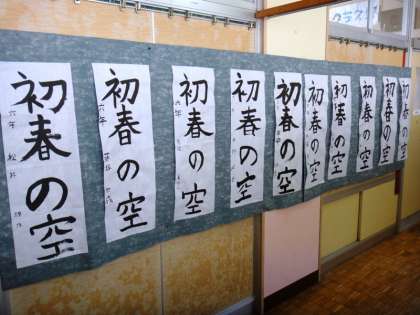 初春の空
六年
初春の空
六年
初春の空
六年
初春の空
初春の空
初春の空
初春の空
初春の空
初春の空
初春の空